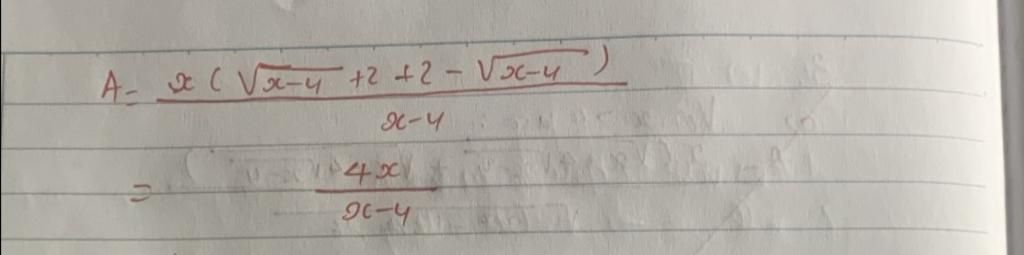 A = x(√x-4 + 2 + 2 - √x-4)
x-4
= 4x
x-4